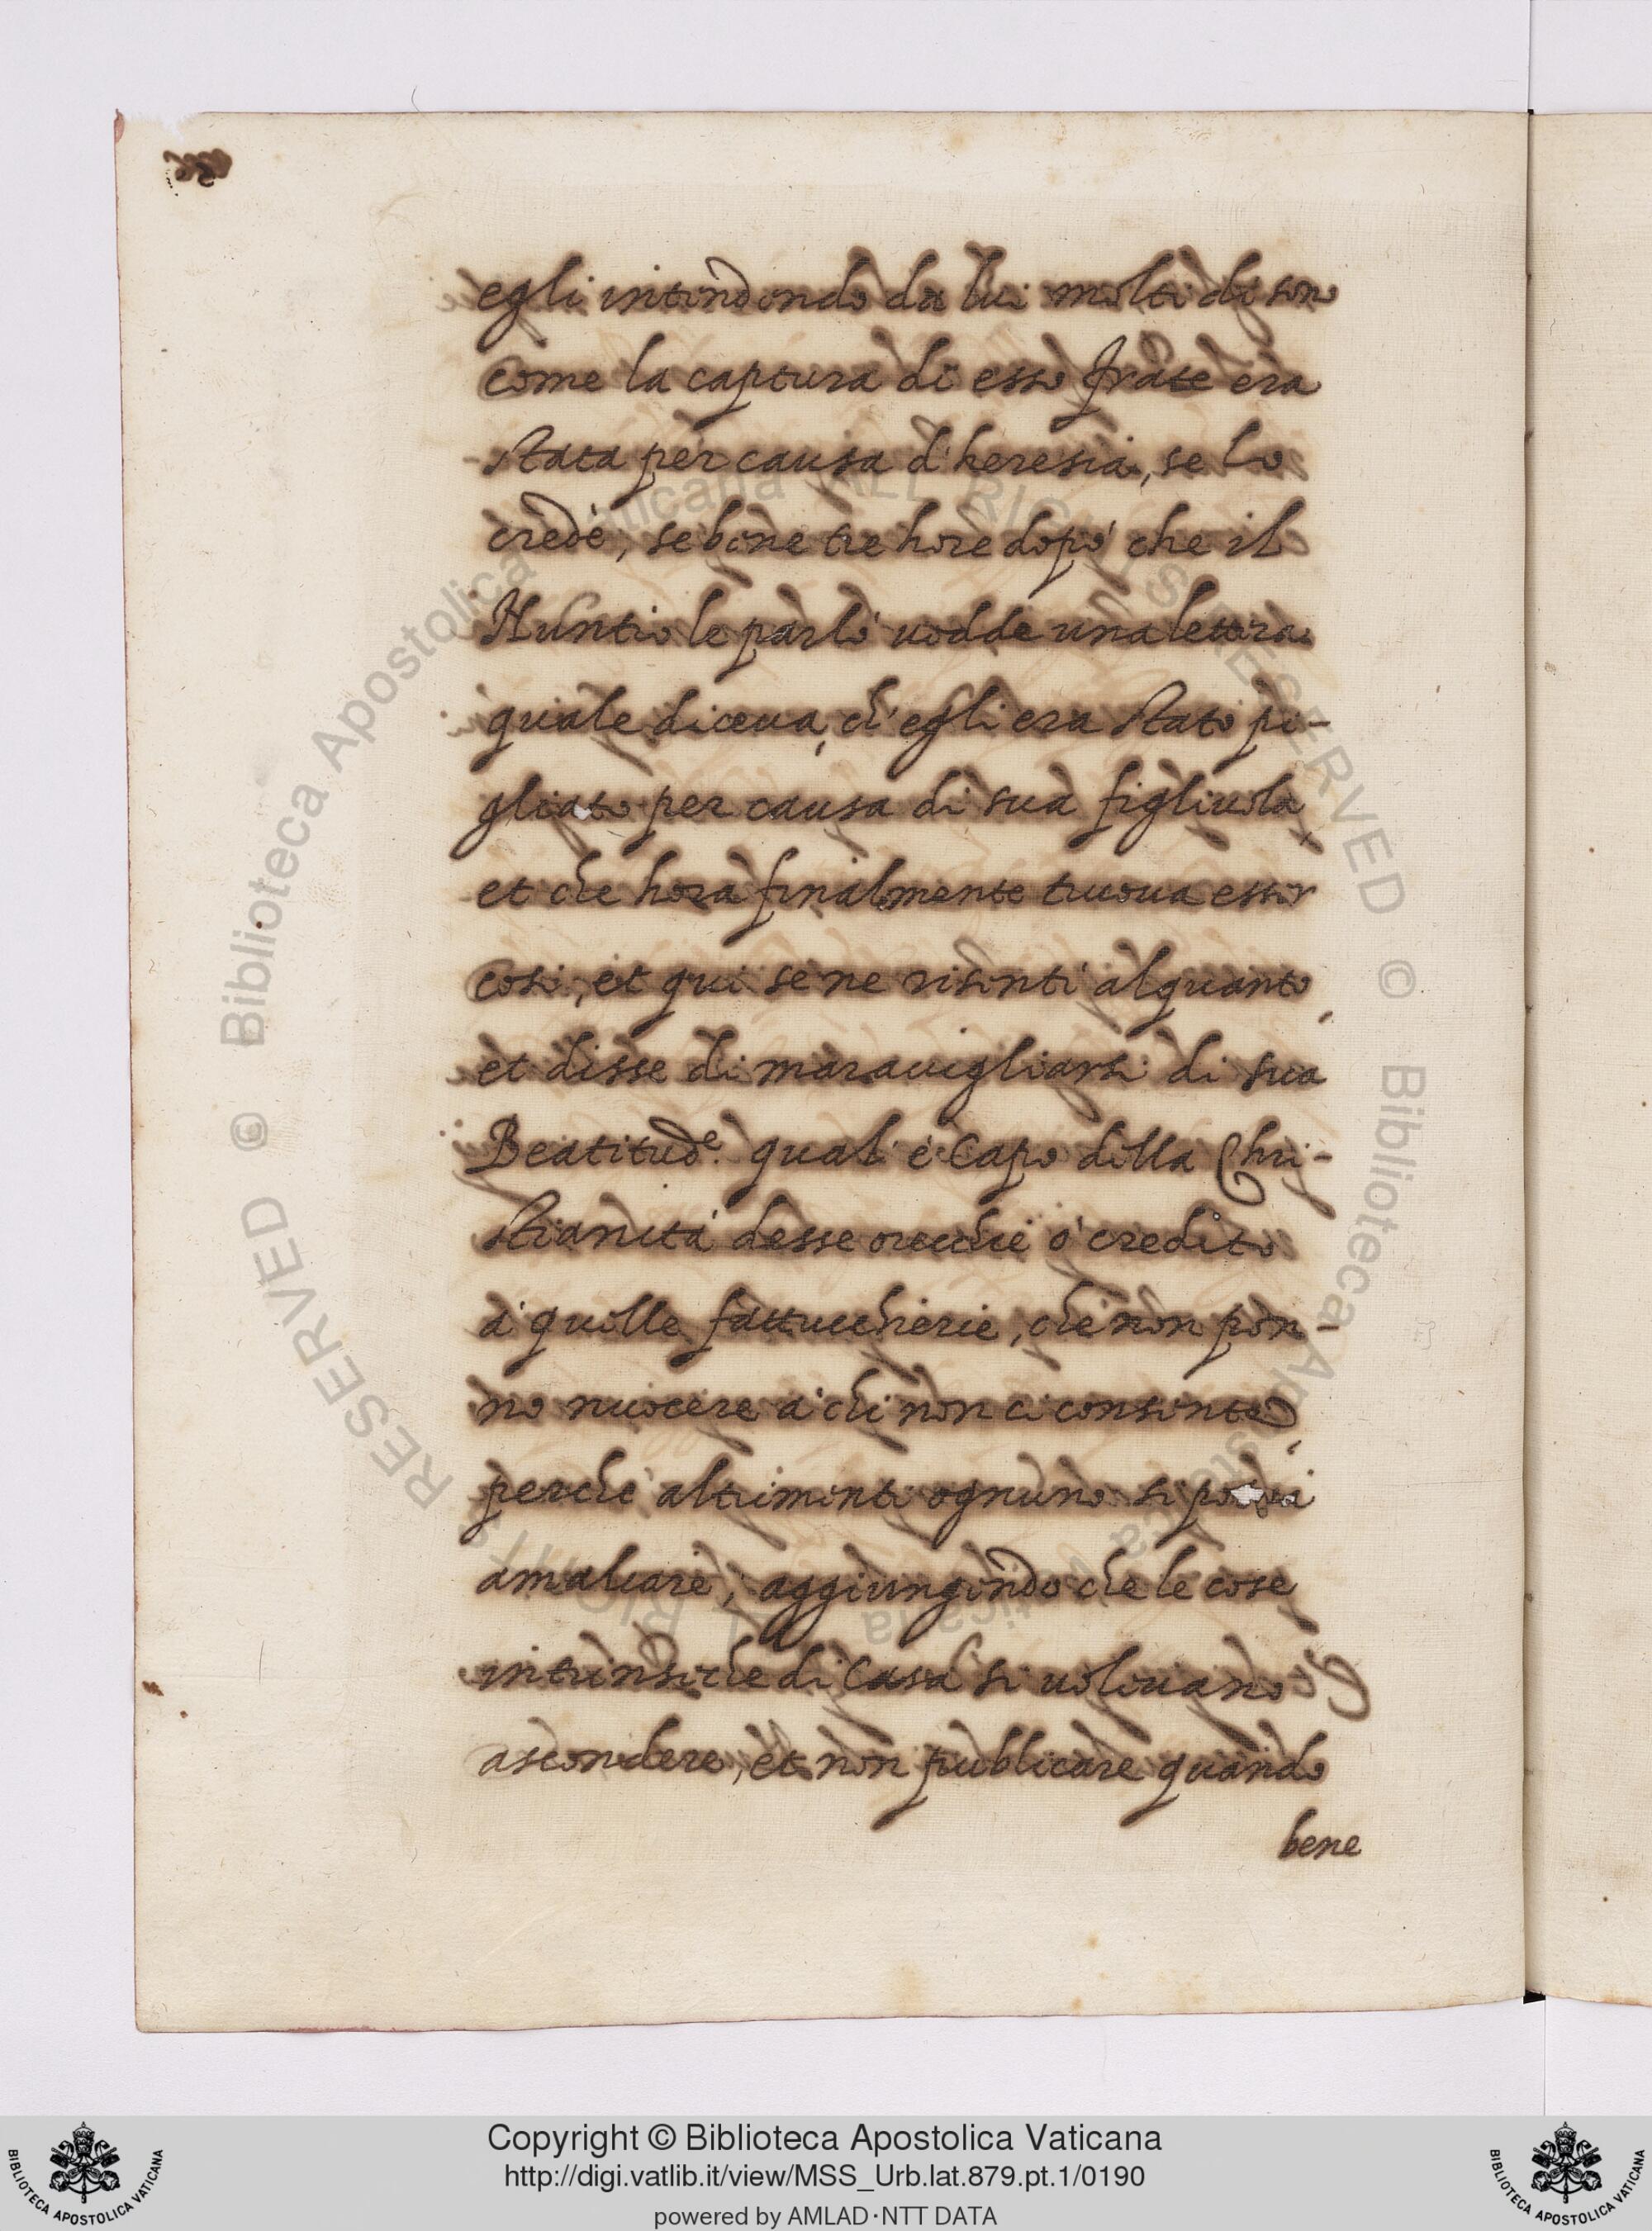 egli intendendo da lui molti di sono
come la captura di esso frate era
stata per causa d'heresia, se lo
credè, se bene tre hore dopò che il
Nuntio le parlò uedde una lettera
quale diceua, ch'egli era stato pi-
gliato per causa di sua figliuola,
et che hora finalmente trouua esser
cosi, et qui se ne risentì alquanto,
et disse di marauigliarsi di sua
Beatitud.e qual' è Capo della Chri-
stianità desse orecchie ò credito
à quelle fattuccherie, che non pon-
no nuocere à chi non ci consente,
perche altrimenti ognuno si
amaliare, aggiungendo che le cose
intrinsiche di Casa si uoleuano
ascondere, et non publicare quando
bene
Copyright © Biblioteca Apostolica Vaticana
http://digi.vatlib.it/view/MSS_Urb.lat.879.pt.1/0190
powered by AMLAD·NTT DATA
BIBLIOTECA APOSTOLICA VATICANA
BIBLIOTECA APOSTOLICA VATICANA